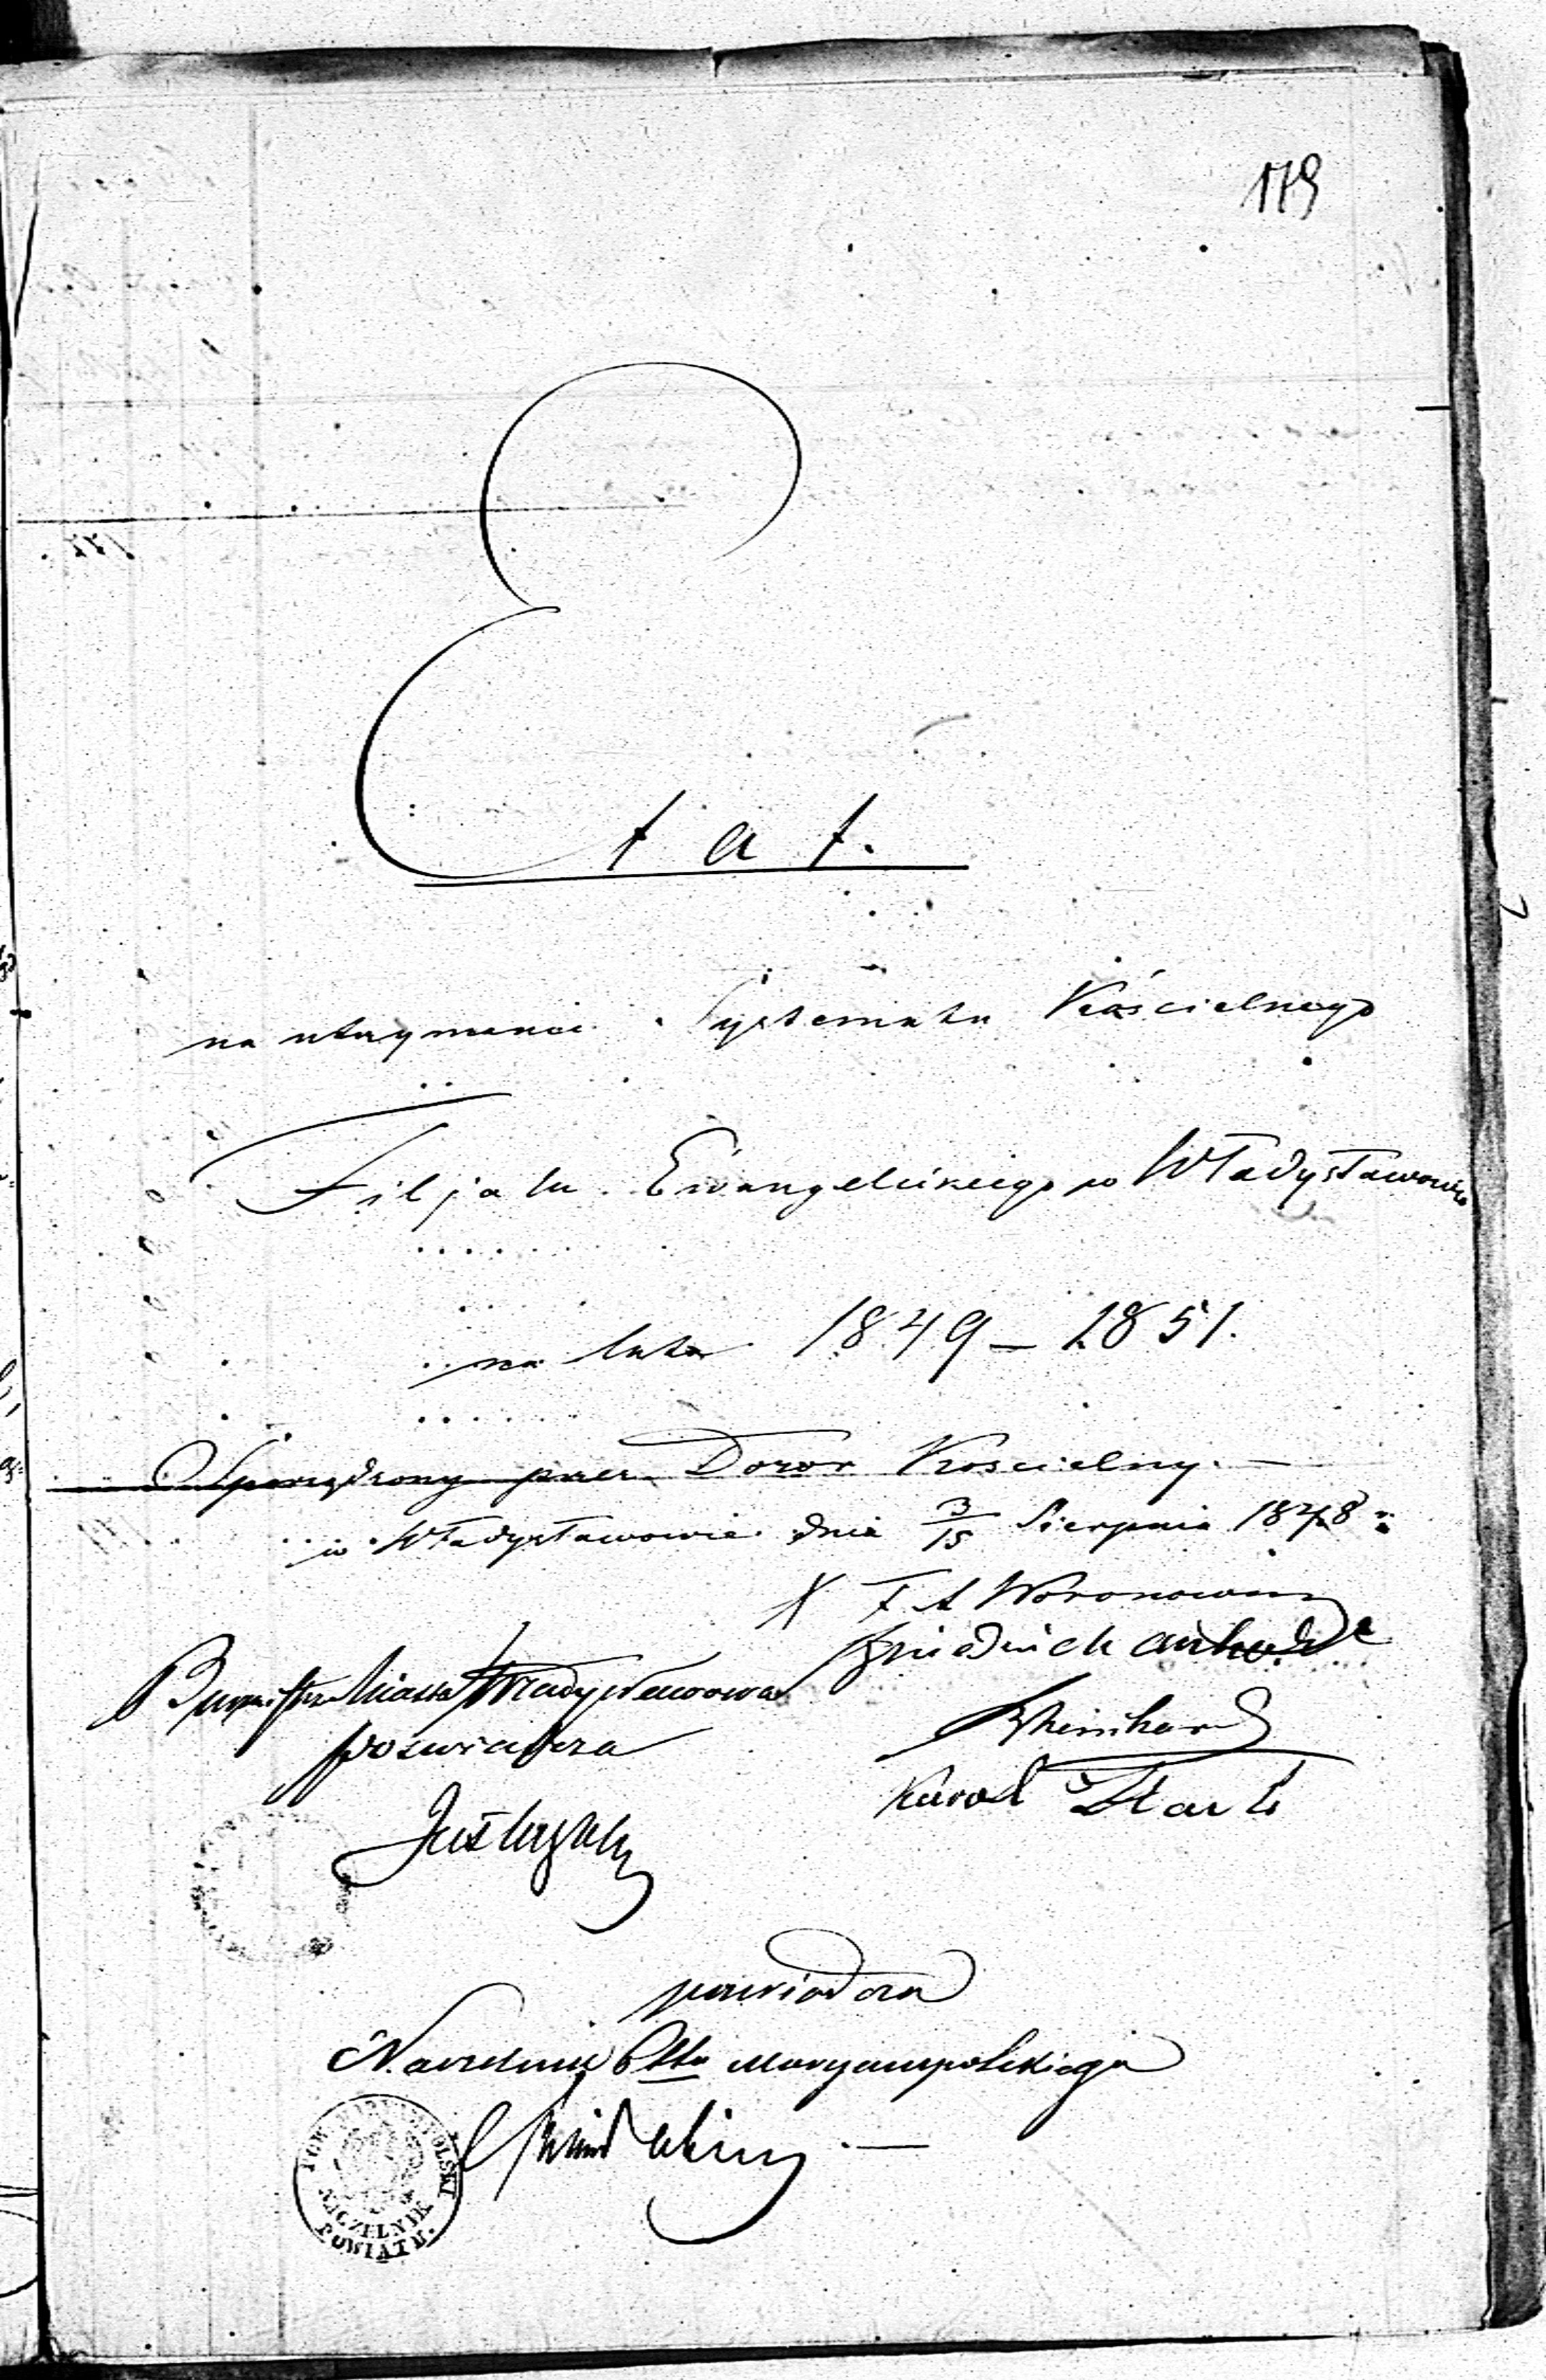 179
Etat.
na utrzymanie Systematu Kościelnego
Filjału Ewangelickiego w Władysławowie
na lata 1849 – 1851.
Sporządzony przez Dozor Koscielny. —
w Władysławowie dnia 3/15 Sierpnia 1848
X F. A Woronowicz
Friedrich
Burmistrz Miasta Władysławowa
Rheinhard
poswiadcza
Karol
poswiadcza
Naczelnik Pttu Maryampolskiego
NACZELNIK
POWIATU.